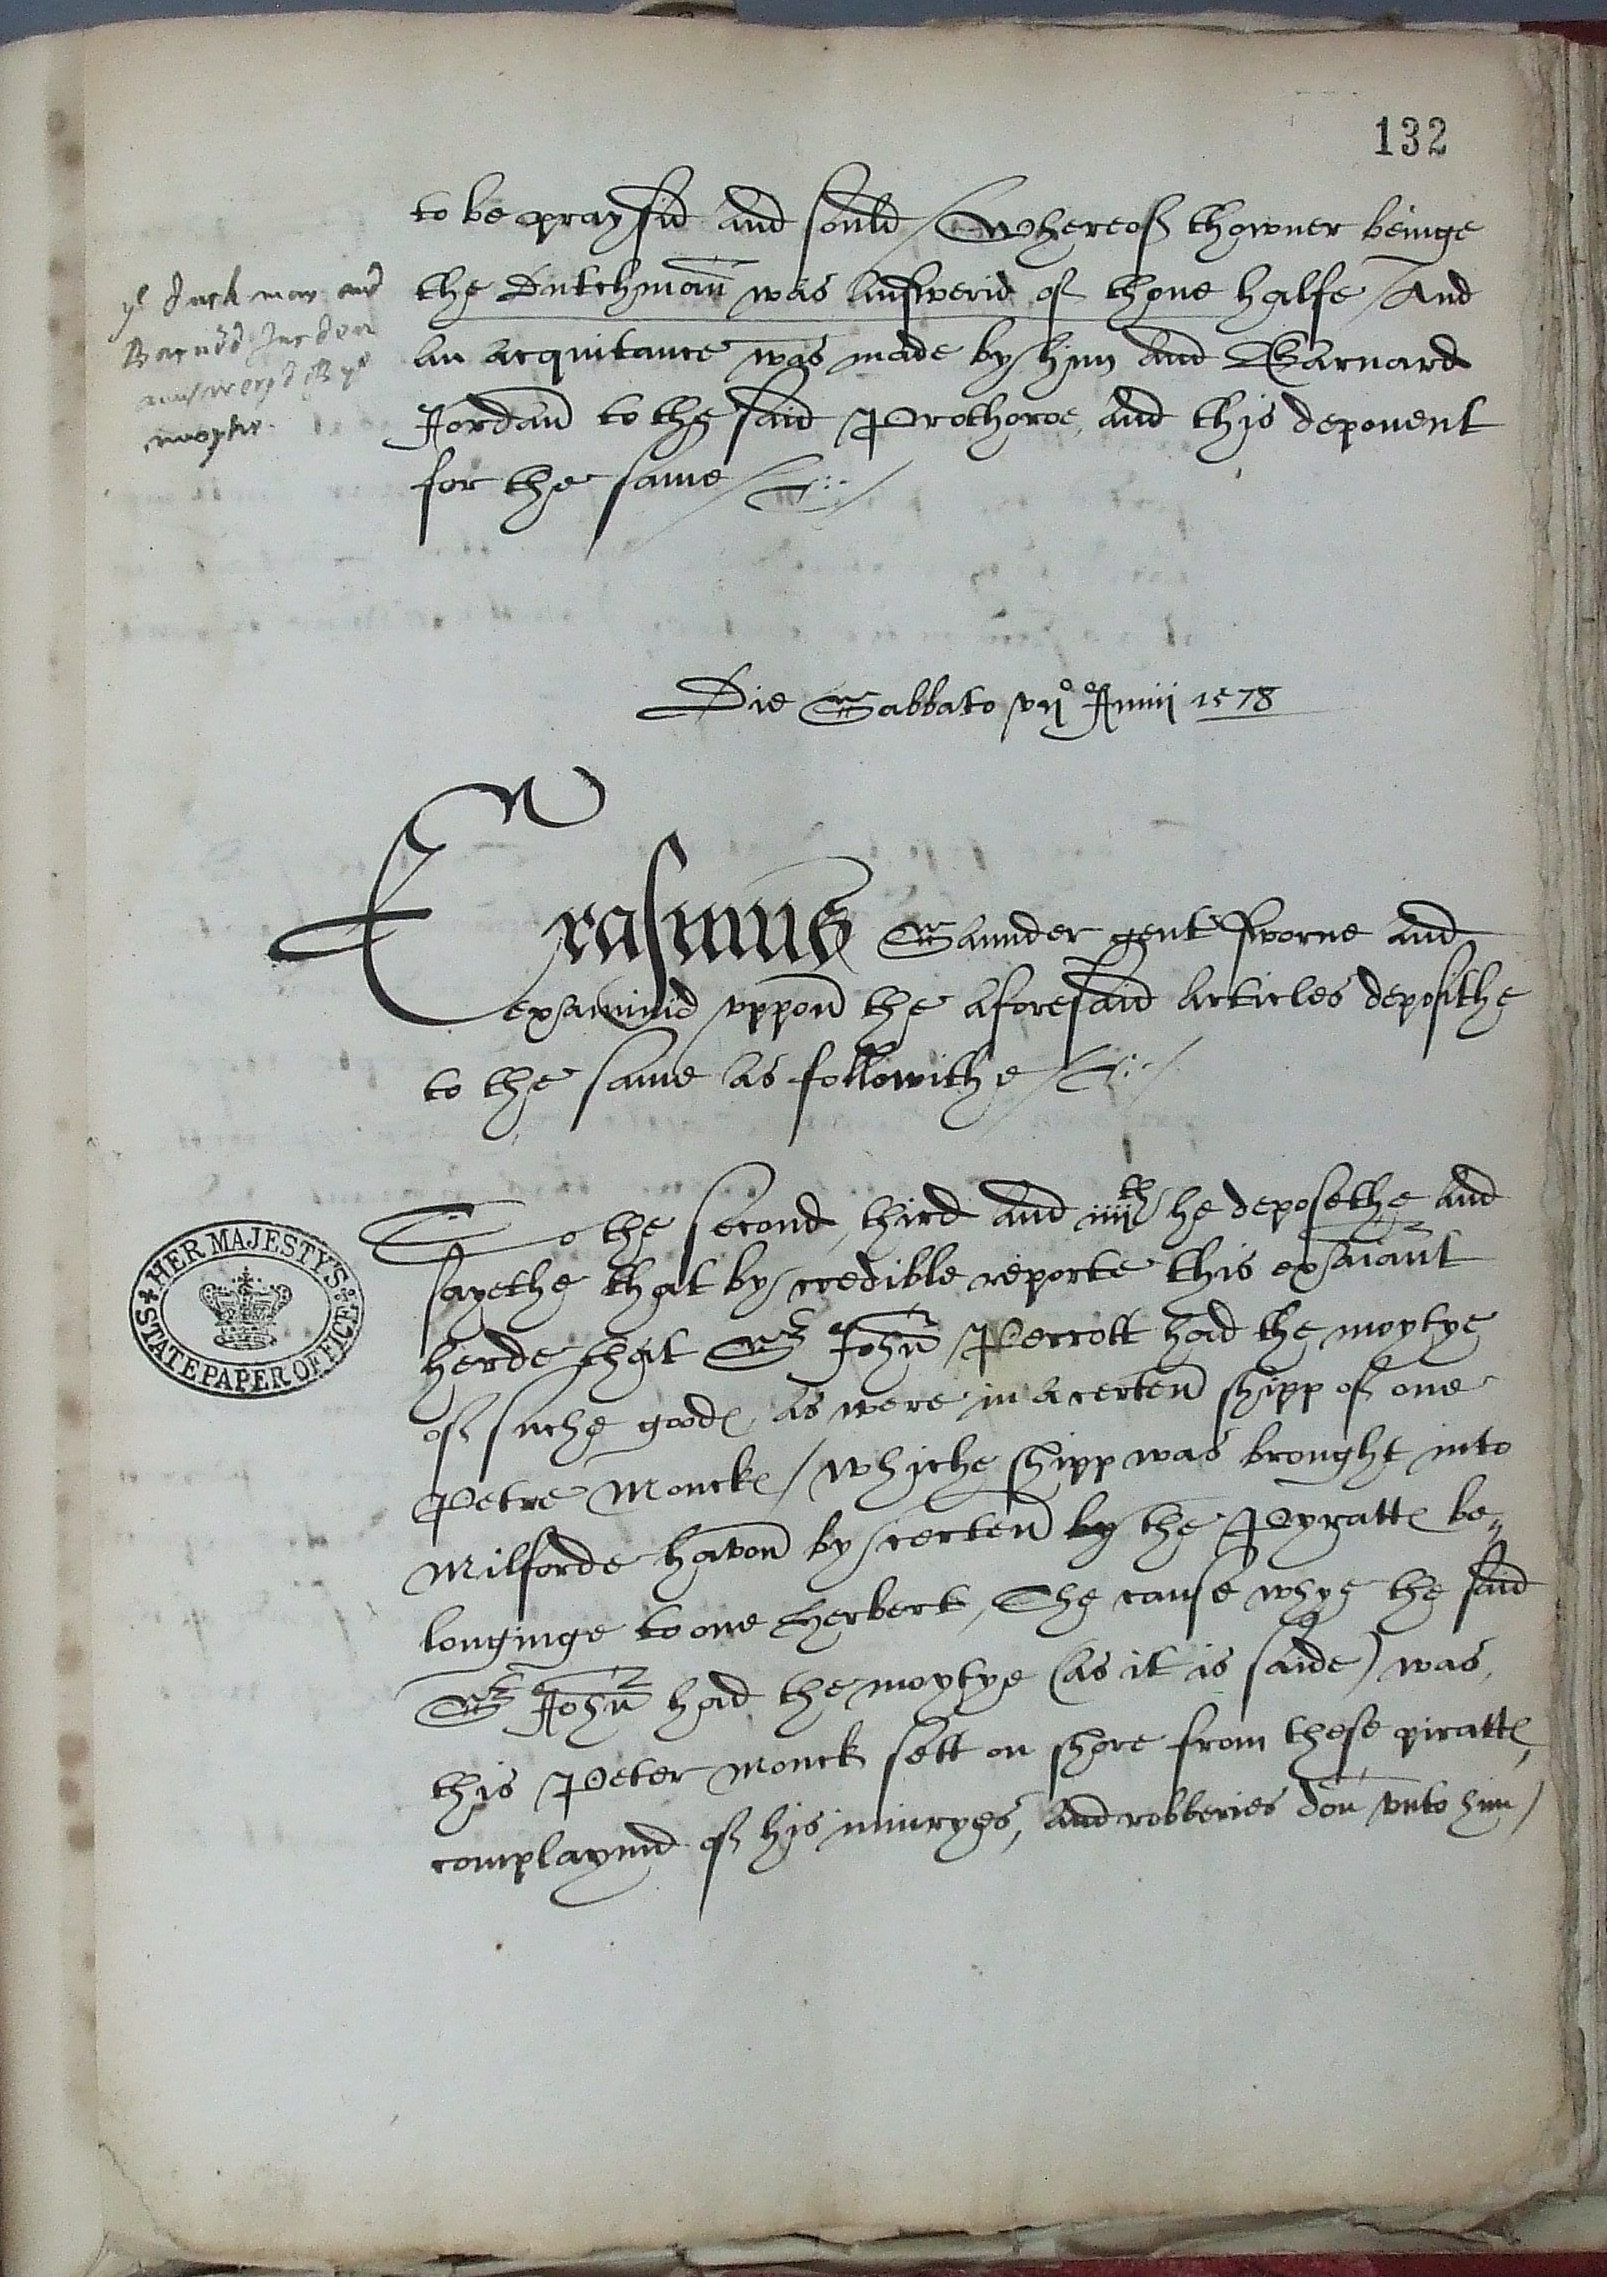 132
to be praysid and sould / Whereof thowner beinge
the Dutchman was answerid of thone halfe / And
an acquitance was made by him and Barnard
Jordan to the said Prothoroe, and this deponent
for the same /
ye duch man and
Barnard Jurden
answeryd By ye
moytie.
Die Sabbato vijo Junij 1578
Erasmus Saunder gent sworne and
examinid uppon the aforesaid articles deposithe
to the same as followithe /
To the second, third and iiijth he deposethe and
sayethe that by credible reporte this exaiant
herde that Sr John Perrott had the moytye
of suche goodes as were in a certen shipp of one
Petre Monckes / whiche shipp was brought into
Milforde havon by certen by the Pyrattes be„
longinge to one Herbert, The cause whye the said
Sr John had the moytye (as it is saide) was,
this Peter Monck sett on shore from these pirattes,
complaynid of his iniuryes, and robberies don unto him /
HER MAJESTY'S
STATE PAPER OFFICE